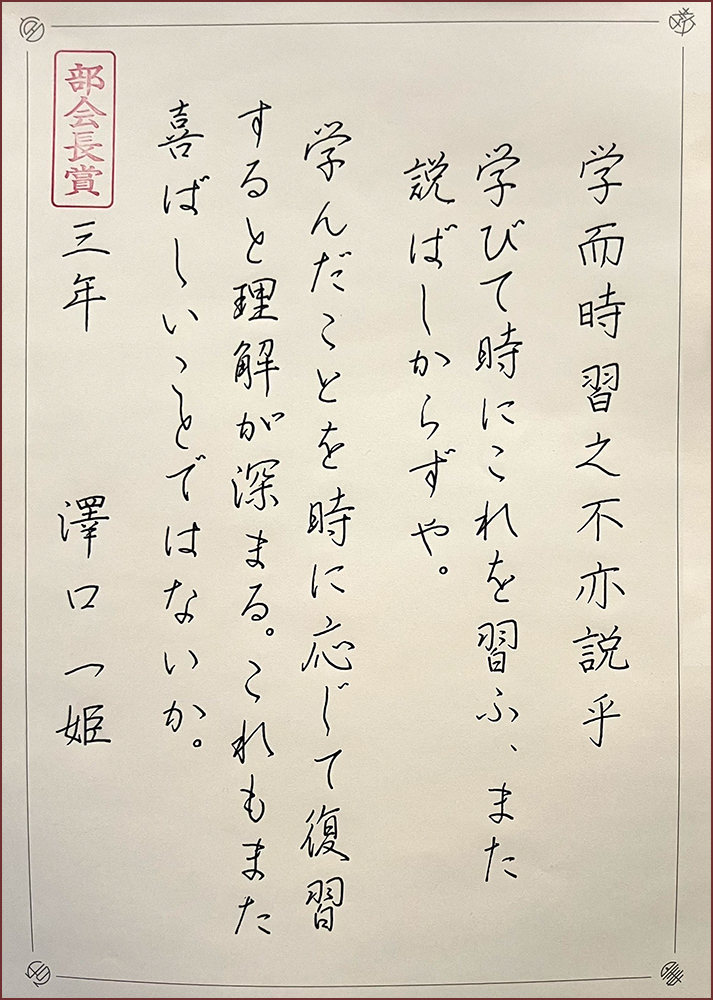 学而時習之不亦説乎
学びて時にこれを習ふ、また
説ばしからずや。
学んだことを時に応じて復習
すると理解が深まる。これもまた
喜ばしいことではないか。
部会長賞
三年 澤口 一姫